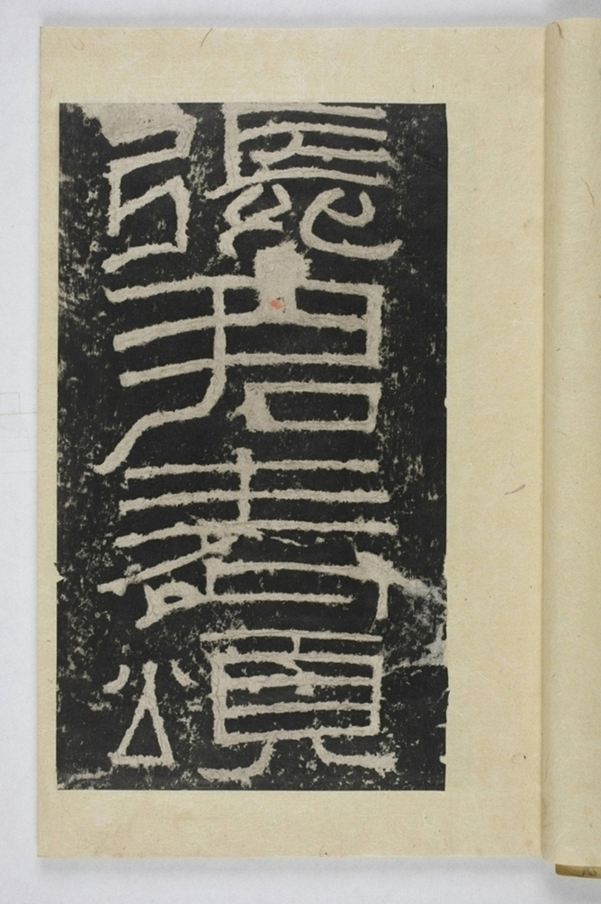 張君表頌